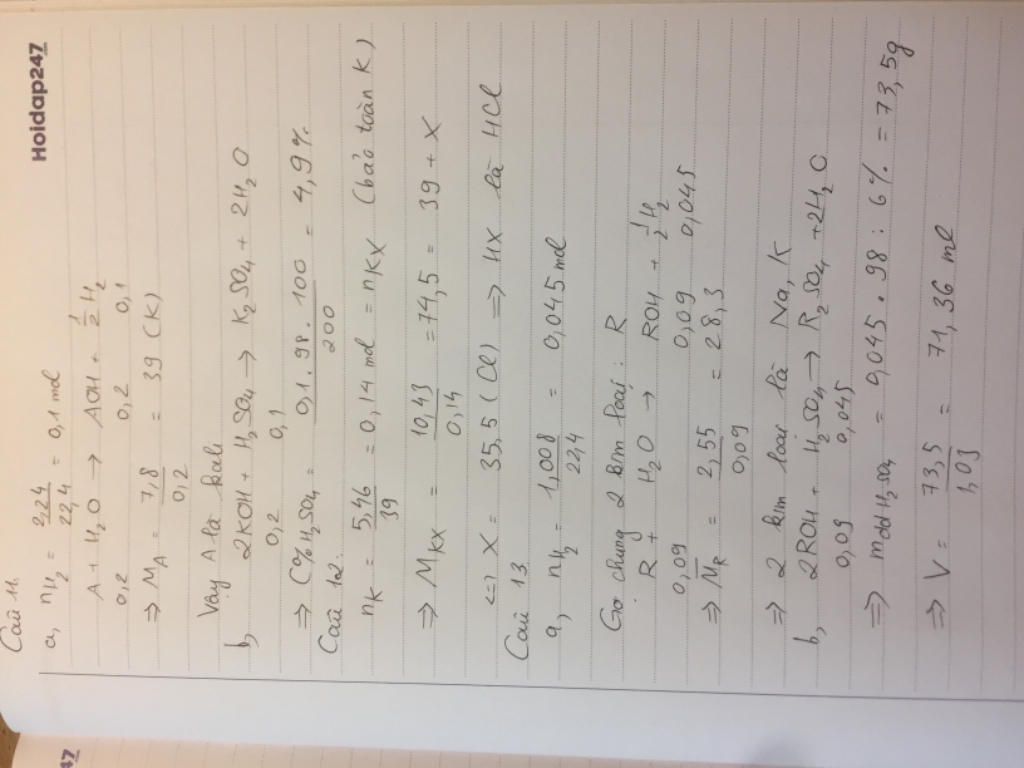 Hoidap247
Câu 11.
a, nH₂ = 2,24/22,4 = 0,1 mol
A + H₂O → AOH + 1/2 H₂
0,2 0,2 0,1
⇒ M_A = 7,8/0,2 = 39 (K)
Vậy A là kali
b, 2KOH + H₂SO₄ → K₂SO₄ + 2H₂O
0,2 0,1
⇒ C%H₂SO₄ = 0,1.98.100/200 = 4,9%
Câu 12:
nK = 5,46/39 = 0,14 mol = nKX (bảo toàn K)
⇒ M_KX = 10,43/0,14 = 74,5 = 39 + X
<-> X = 35,5 (Cl) ⇒ HX là HCl
Câu 13
a, nH₂ = 1,008/22,4 = 0,045 mol
Gọi chung 2 kim loại: R
R + H₂O → ROH + 1/2 H₂
0,09 0,09 0,045
⇒ M̅_R = 2,55/0,09 = 28,3
⇒ 2 kim loại là Na, K
b, 2ROH + H₂SO₄ → R₂SO₄ + 2H₂O
0,09 0,045
⇒ mdd H₂SO₄ = 0,045.98 : 6% = 73,5g
⇒ V = 73,5/1,03 = 71,36 ml
47